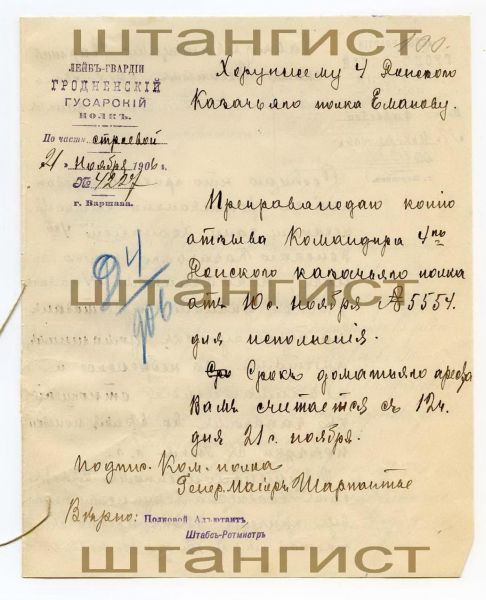 ШТАНГИСТ
100.
ЛЕЙБЪ-ГВАРДІИ
ГРОДНЕНСКІЙ
ГУСАРСКІЙ
ПОЛКЪ.
По части строевой
„21“ Ноября 1906 г.
№ 4227
г. Варшава.
Хорунжему 4 Донского
Казачьяго полка Еманову.
ШТАНГИСТ
Препровождаю копію
отзыва Командира 4го
Донского казачьяго полка
ШТАНГИСТ
отъ 10 с. ноября № 5554.
для исполненія.
Д 4/906
Срокъ домашняго ареста
Вамъ считается съ 12 ч.
дня 21 с. ноября.
подпис. Ком. полка
Генер. Маіоръ Шарпантье
Вѣрно: Полковой Адъютантъ,
Штабсъ-Ротмистръ
ШТАНГИСТ